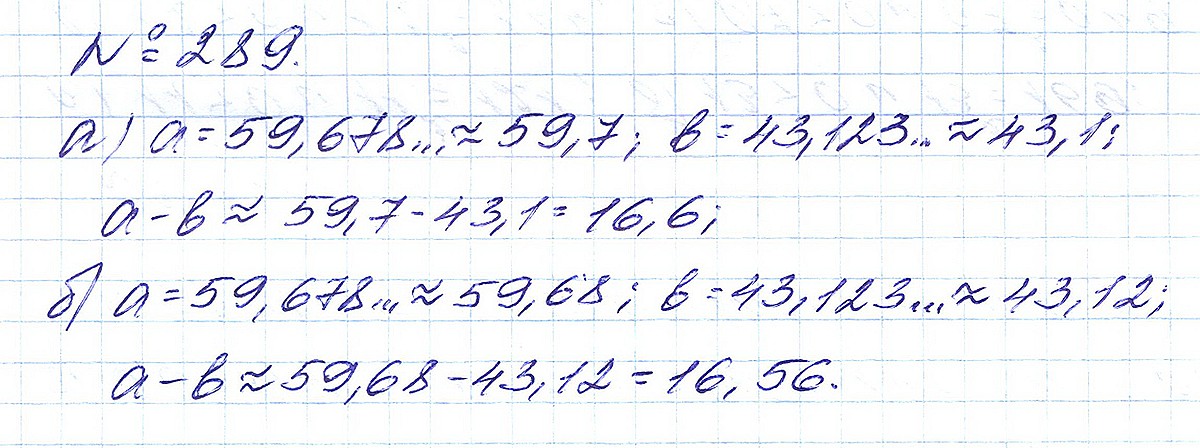 № 289.
а) a = 59,678... ≈ 59,7; в = 43,123... ≈ 43,1;
a - в ≈ 59,7 - 43,1 = 16,6;
б) a = 59,678... ≈ 59,68; в = 43,123... ≈ 43,12;
a - в ≈ 59,68 - 43,12 = 16,56.